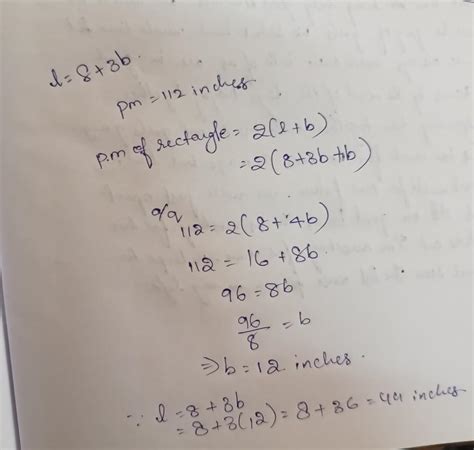 l = 8 + 3b.
pm = 112 inches
p.m of rectagle = 2(l + b)
= 2(8 + 3b + b)
a/q
112 = 2(8 + 4b)
112 = 16 + 8b.
96 = 8b
96/8 = b
⇒ b = 12 inches.
∵ l = 8 + 3b
= 8 + 3(12) = 8 + 36 = 44 inches